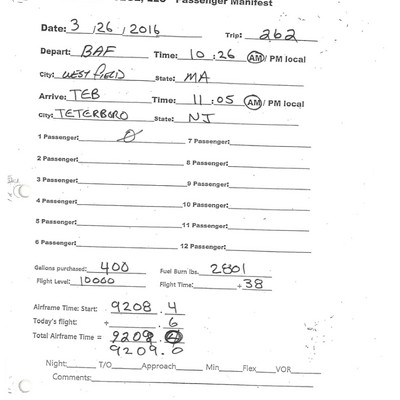 Passenger Manifest
Date: 3 /26 /2016 Trip: 262
Depart: BAF Time: 10 :26 AM / PM local
City: WESTFIELD State: MA
Arrive: TEB Time: 11 :05 AM / PM local
City: TETERBORO State: NJ
1 Passenger: 0 7 Passenger:
2 Passenger: 8 Passenger:
3 Passenger: 9 Passenger:
4 Passenger: 10 Passenger:
5 Passenger: 11 Passenger:
6 Passenger: 12 Passenger:
Gallons purchased: 400 Fuel Burn lbs. 2801
Flight Level: 10000 Flight Time: +38
Airframe Time: Start: 9208 . 4
Today's flight: + . 6
Total Airframe Time = 9209 .
9209.0
Night: T/O Approach Min Flex VOR
Comments: